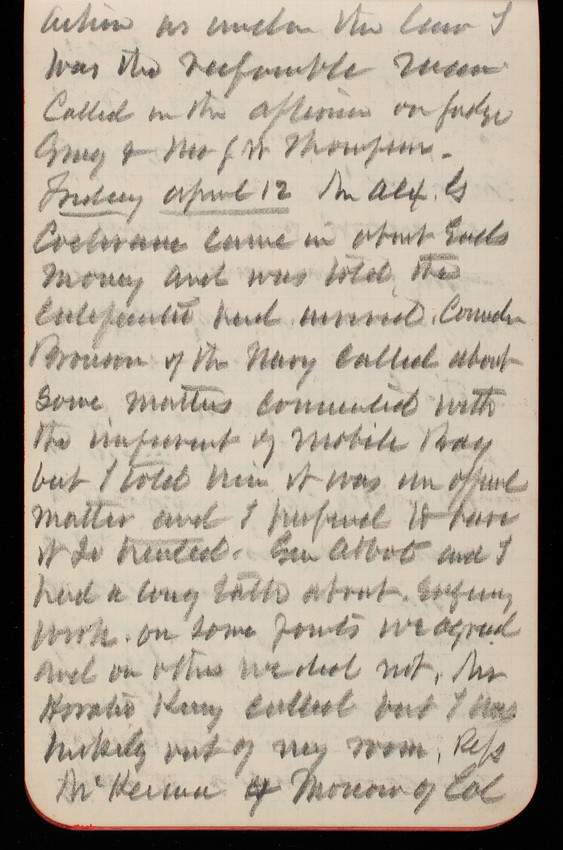 action as under the law I
was the responsible man
Called in the afternoon on Judge
Gray & Mr J W Thompson.
Friday April 12 Mr Alex. G
Cochrane came in about Eads
Money and was told the
had arrived. Comdr
Bronson of the Navy called about
Some matters connected with
the improvement of Mobile Bay
but I told him it was an official
matter and I preferred to have
it so treated. Gen Abbot and I
had a long talk about
work. on some points we agreed
and on others we did not. Mr
Horatio King called but I was
luckily out of my room. Reps
McKenna & Morrow of Cal